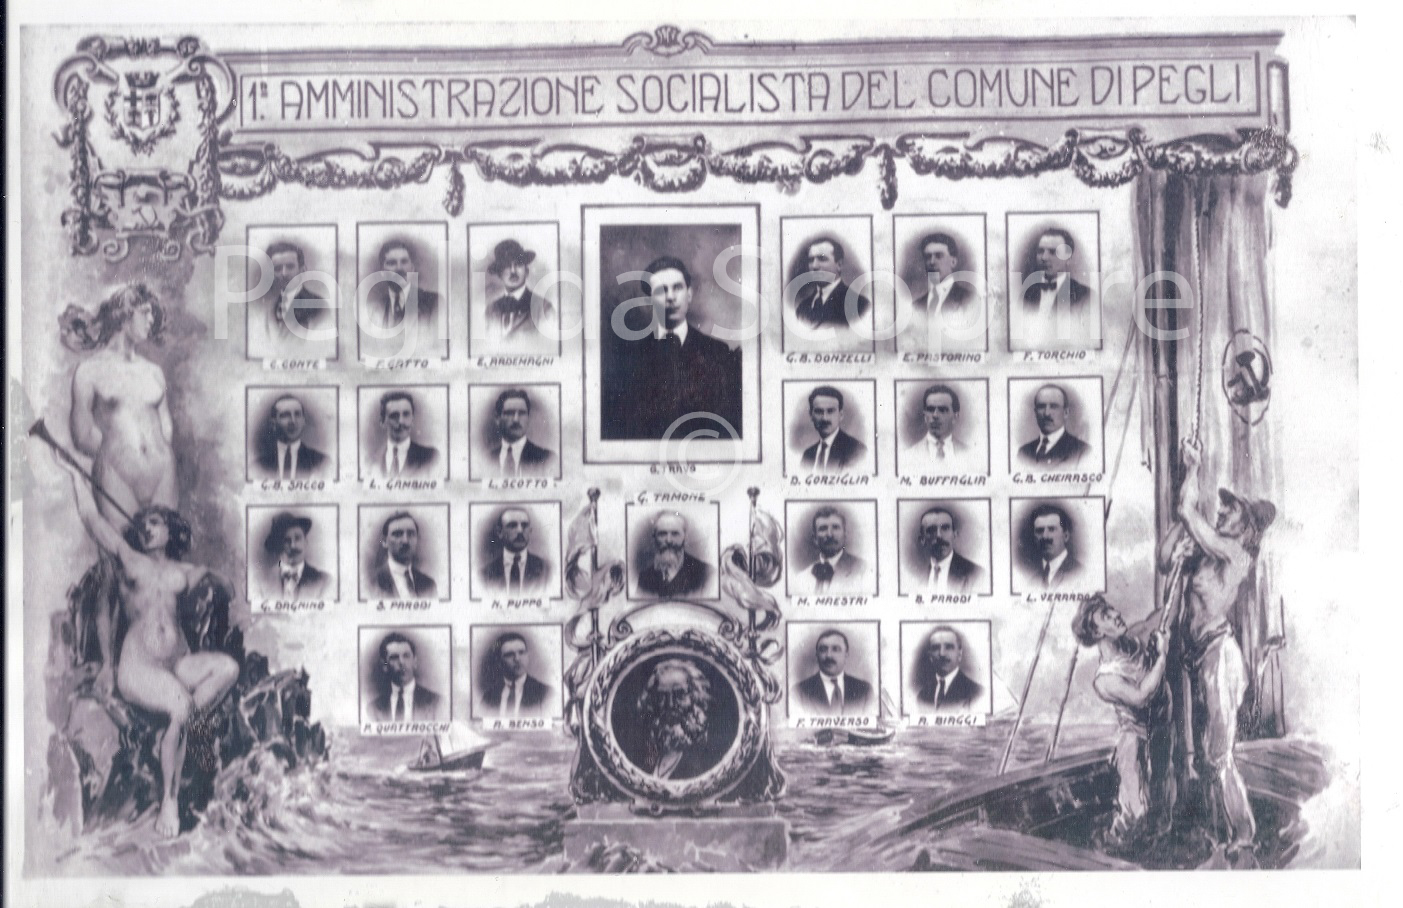 1ª. AMMINISTRAZIONE SOCIALISTA DEL COMUNE DI PEGLI
Pegli da Scoprire
©
C. CONTE F. GATTO E. ARDEMAGNI G. B. DONZELLI E. PASTORINO F. TORCHIO
G. TRAVO
G. B. SACCO L. GAMBINO L. SCOTTO D. GORZIGLIA M. BUFFAGLIA G. B. CHEIRASCO
G. TAMONE
G. DAGNINO S. PARODI N. PUPPO M. MAESTRI B. PARODI L. VERARDO
P. QUATTROCCHI A. BENSO F. TRAVERSO A. BIAGGI